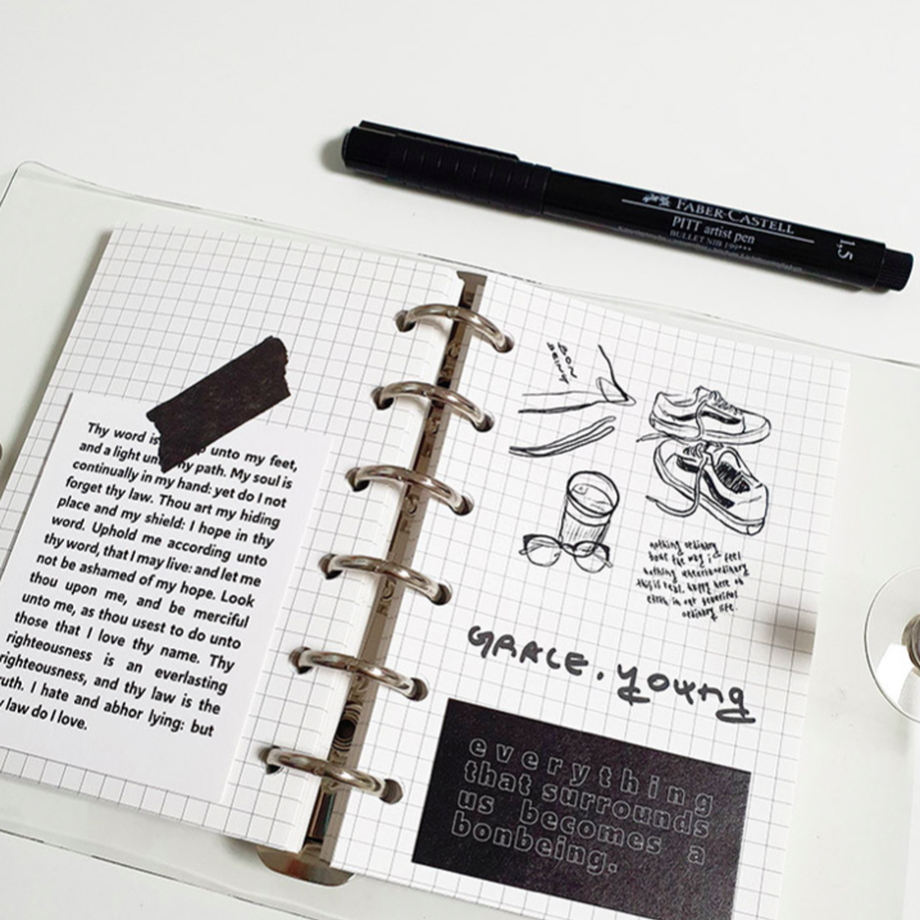 FABER-CASTELL
PITT artist pen
BULLET NIB 199***
1,5
Thy word is unto my feet,
and a light un hy path. My soul is
continually in my hand: yet do I not
forget thy law. Thou art my hiding
place and my shield: I hope in thy
word. Uphold me according unto
thy word, that I may live: and let me
not be ashamed of my hope. Look
thou upon me, and be merciful
unto me, as thou usest to do unto
those that I love thy name. Thy
righteousness is an everlasting
righteousness, and thy law is the
ruth. I hate and abhor lying: but
y law do I love.
BON
BEING
nothing ordinary
bout the way i feel
nothing extraordinary
this is real. happy here on
earth in our beautiful
ordinary life.
GRACE. young
everything
that surrounds
us becomes a
bonbeing.